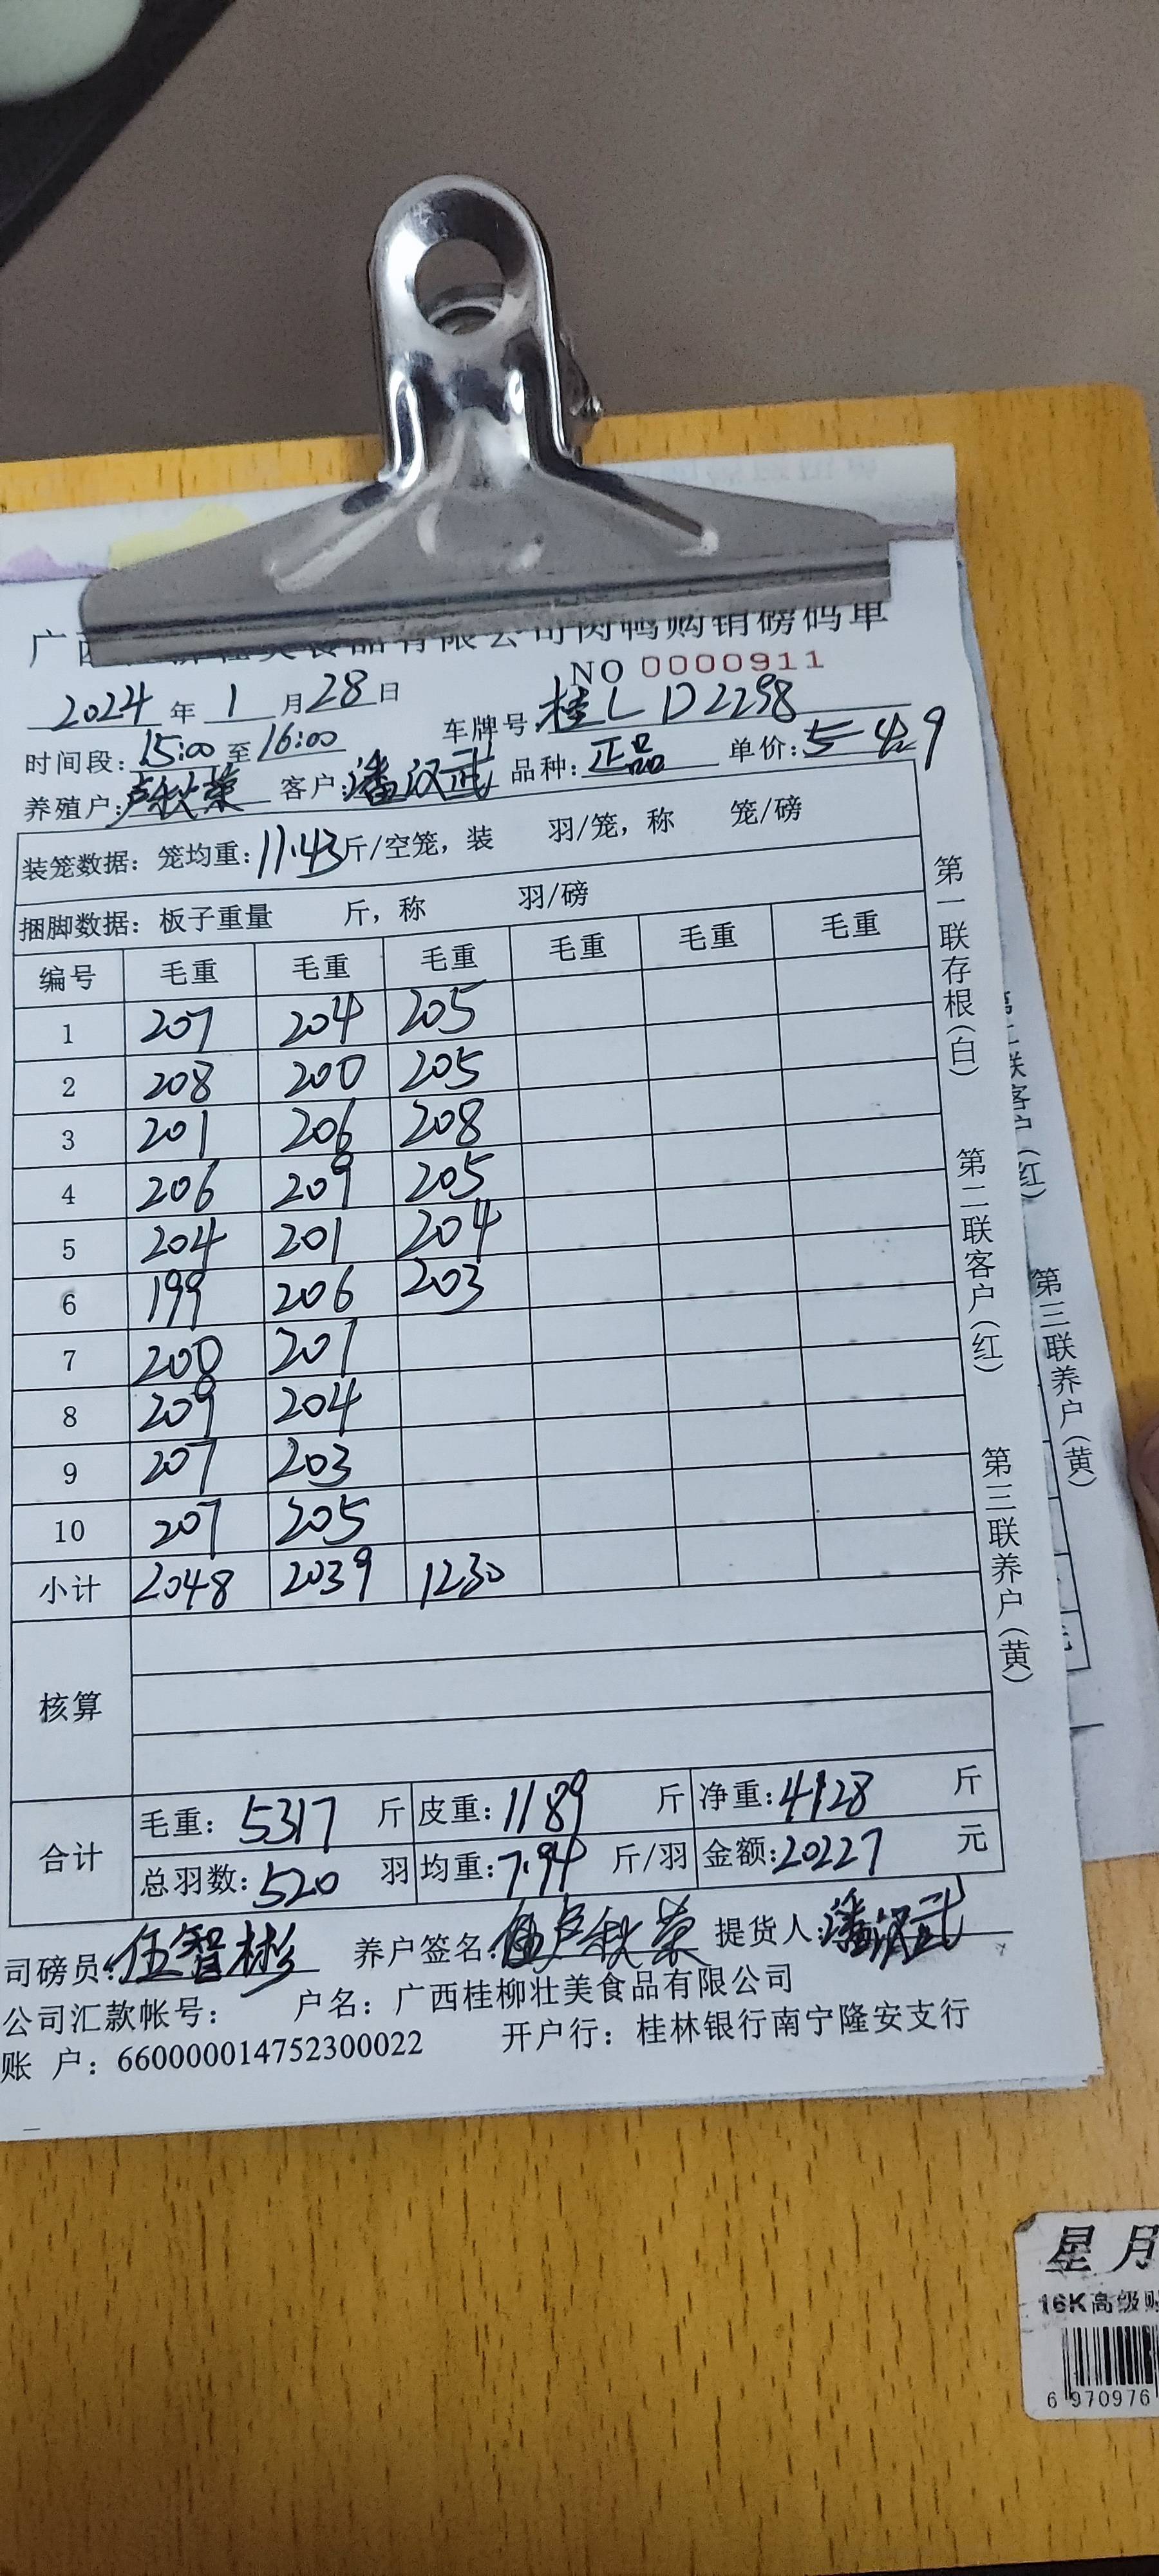 广西
食品有限公司肉鸭购销磅码单
NO 0000911
2024 年 1 月 28 日
车牌号 桂L D2298
时间段: 15:00 至 16:00
养殖户: 卢秋荣 客户: 潘汉武 品种: 正品 单价:
装笼数据: 笼均重: 11.43 斤/空笼, 装 羽/笼, 称 笼/磅
捆脚数据: 板子重量 斤, 称 羽/磅
编号 毛重 毛重 毛重 毛重 毛重 毛重
1 207 204 205
2 208 200 205
3 201 206 208
4 206 209 205
5 204 201 204
6 199 206 203
7 200 201
8 209 204
9 207 203
10 207 205
小计 2048 2039 1230
核算
合计
毛重: 5317 斤 皮重: 1189 斤 净重: 4128 斤
总羽数: 520 羽 均重: 7.94 斤/羽 金额: 20227 元
司磅员: 伍智彬 养户签名: 卢秋荣 提货人: 潘汉武
公司汇款帐号: 户名: 广西桂柳壮美食品有限公司
账 户: 660000014752300022 开户行: 桂林银行南宁隆安支行
第一联存根(白) 第二联客户(红) 第三联养户(黄)
联客户(红) 第三联养户(黄)
星月
16K高级
6 970976